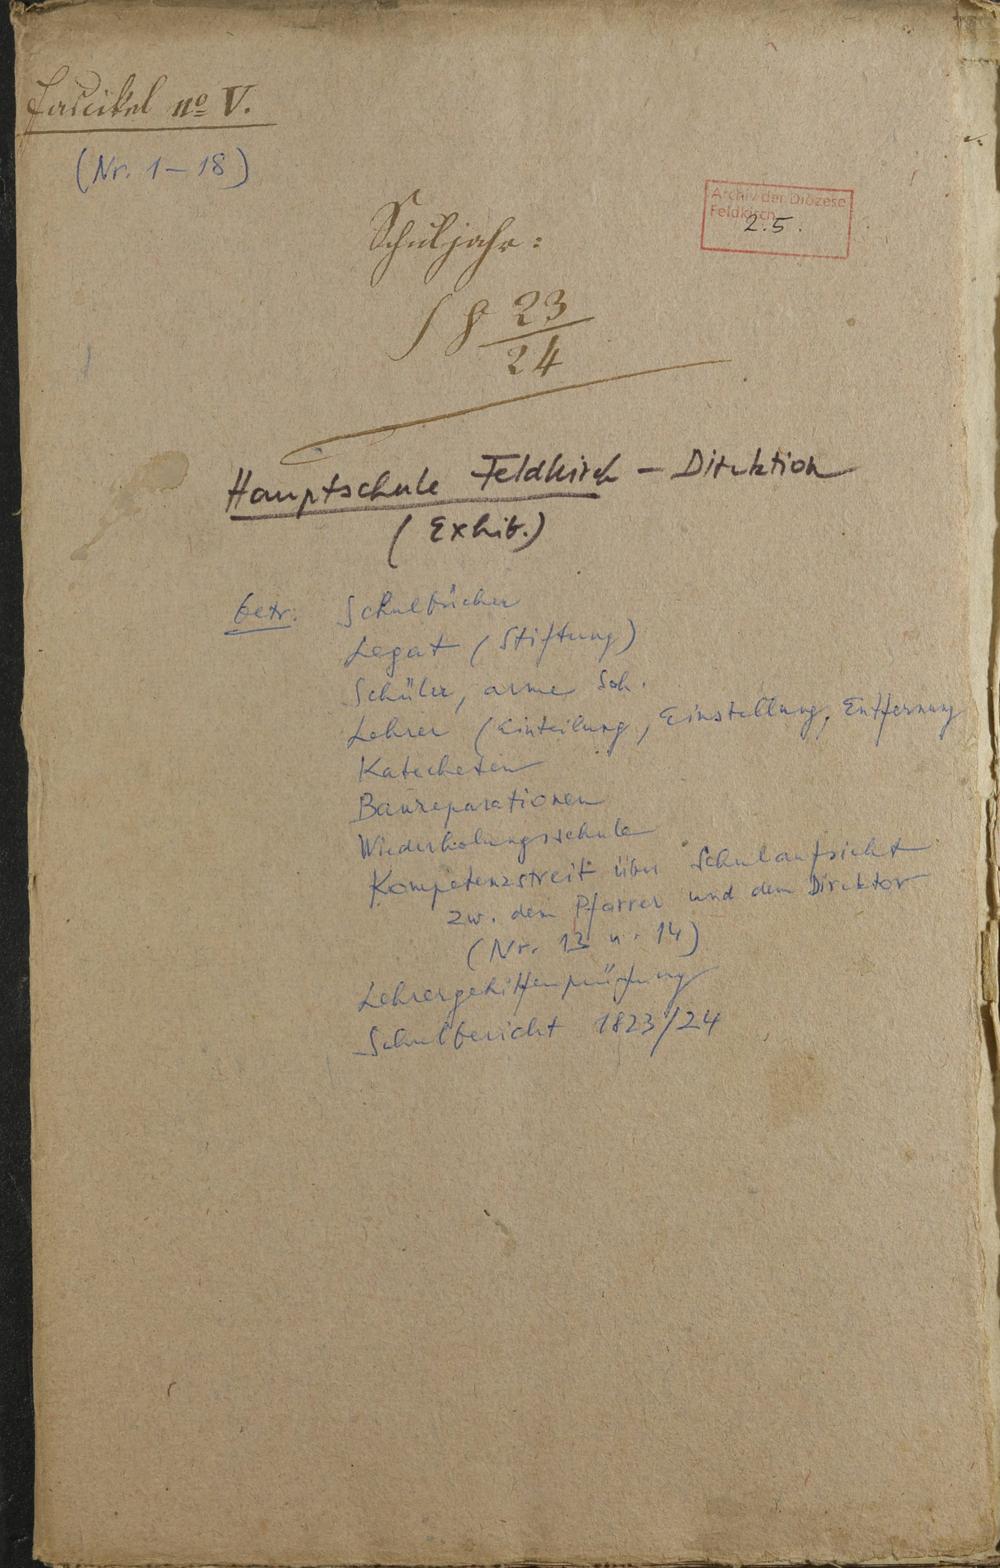 Fascikel no V.
(Nr. 1–18)
Archiv der Diözese
Feldkirch
2.5.
Schuljahr:
18 23/24
Hauptschule Feldkirch – Direktion
(Exhib.)
betr. Schulbücher
Legat (Stiftung)
Schüler, arme Sch.
Lehrer (Einteilung, Einstellung, Entfernung
Katecheten
Baureparationen
Wiederholungsschule
Kompetenzstreit über Schulaufsicht
zw. dem Pfarrer und dem Direktor
(Nr. 13 u. 14)
Lehrergehilfenprüfung
Schulbericht 1823/24